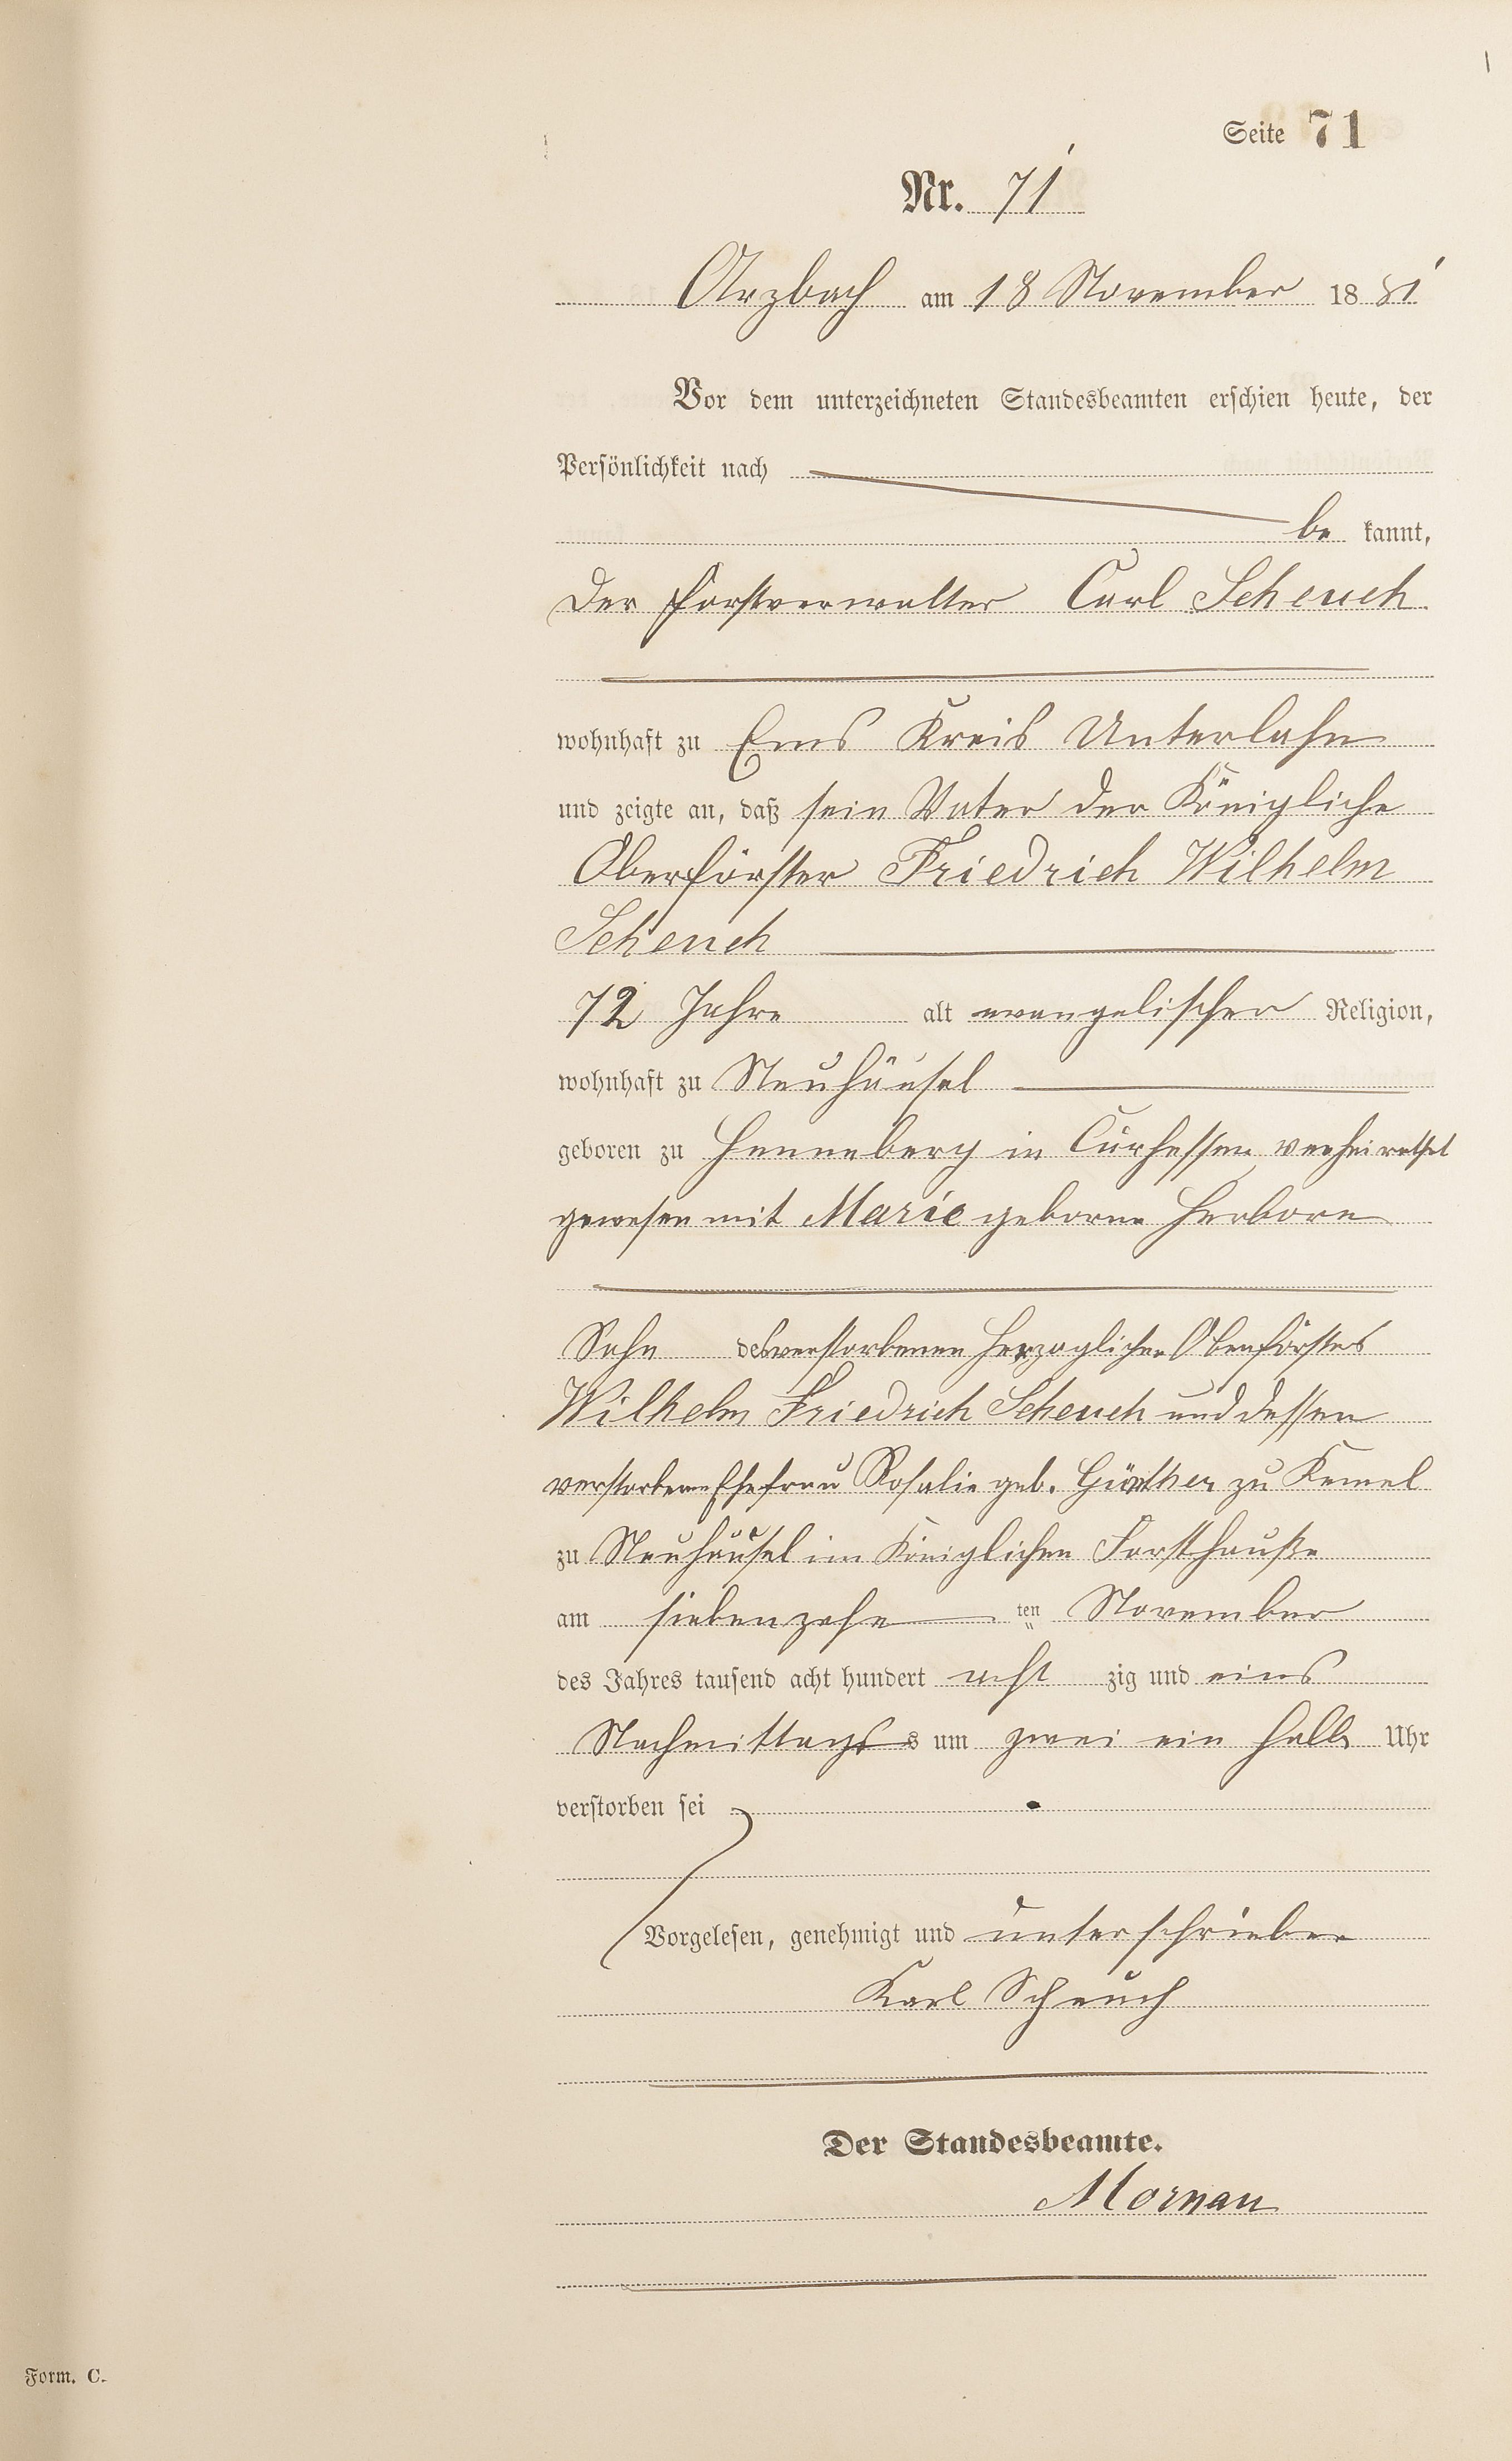 Seite 71
Nr. 71
Arzbach am 18 November 1881
Vor dem unterzeichneten Standesbeamten erschien heute, der
Persönlichkeit nach
be kannt,
der Forstverwalter Carl Scheuch
wohnhaft zu Ems Kreis Unterlahn
und zeigte an, daß sein Vater der Königliche
Oberförster Friedrich Wilhelm
Scheuch
72 Jahre alt evangelischer Religion,
wohnhaft zu Neuhäusel
geboren zu Henneberg in Curhessen, verheirathet
gewesen mit Marie geborne Herborn
Sohn des verstorbenen Herzoglichen Oberförsters
Wilhelm Friedrich Scheuch und dessen
verstorbene Ehefrau Rosalie geb. Günther zu Kemel
zu Neuhäusel im Königlichen Forsthauße
am siebenzehn ten November
des Jahres tausend acht hundert acht zig und eins
Nachmittags s um zwei ein halb Uhr
verstorben sei
Vorgelesen, genehmigt und unterschrieben
Karl Scheuch
Der Standesbeamte.
Mornau
Form. C.